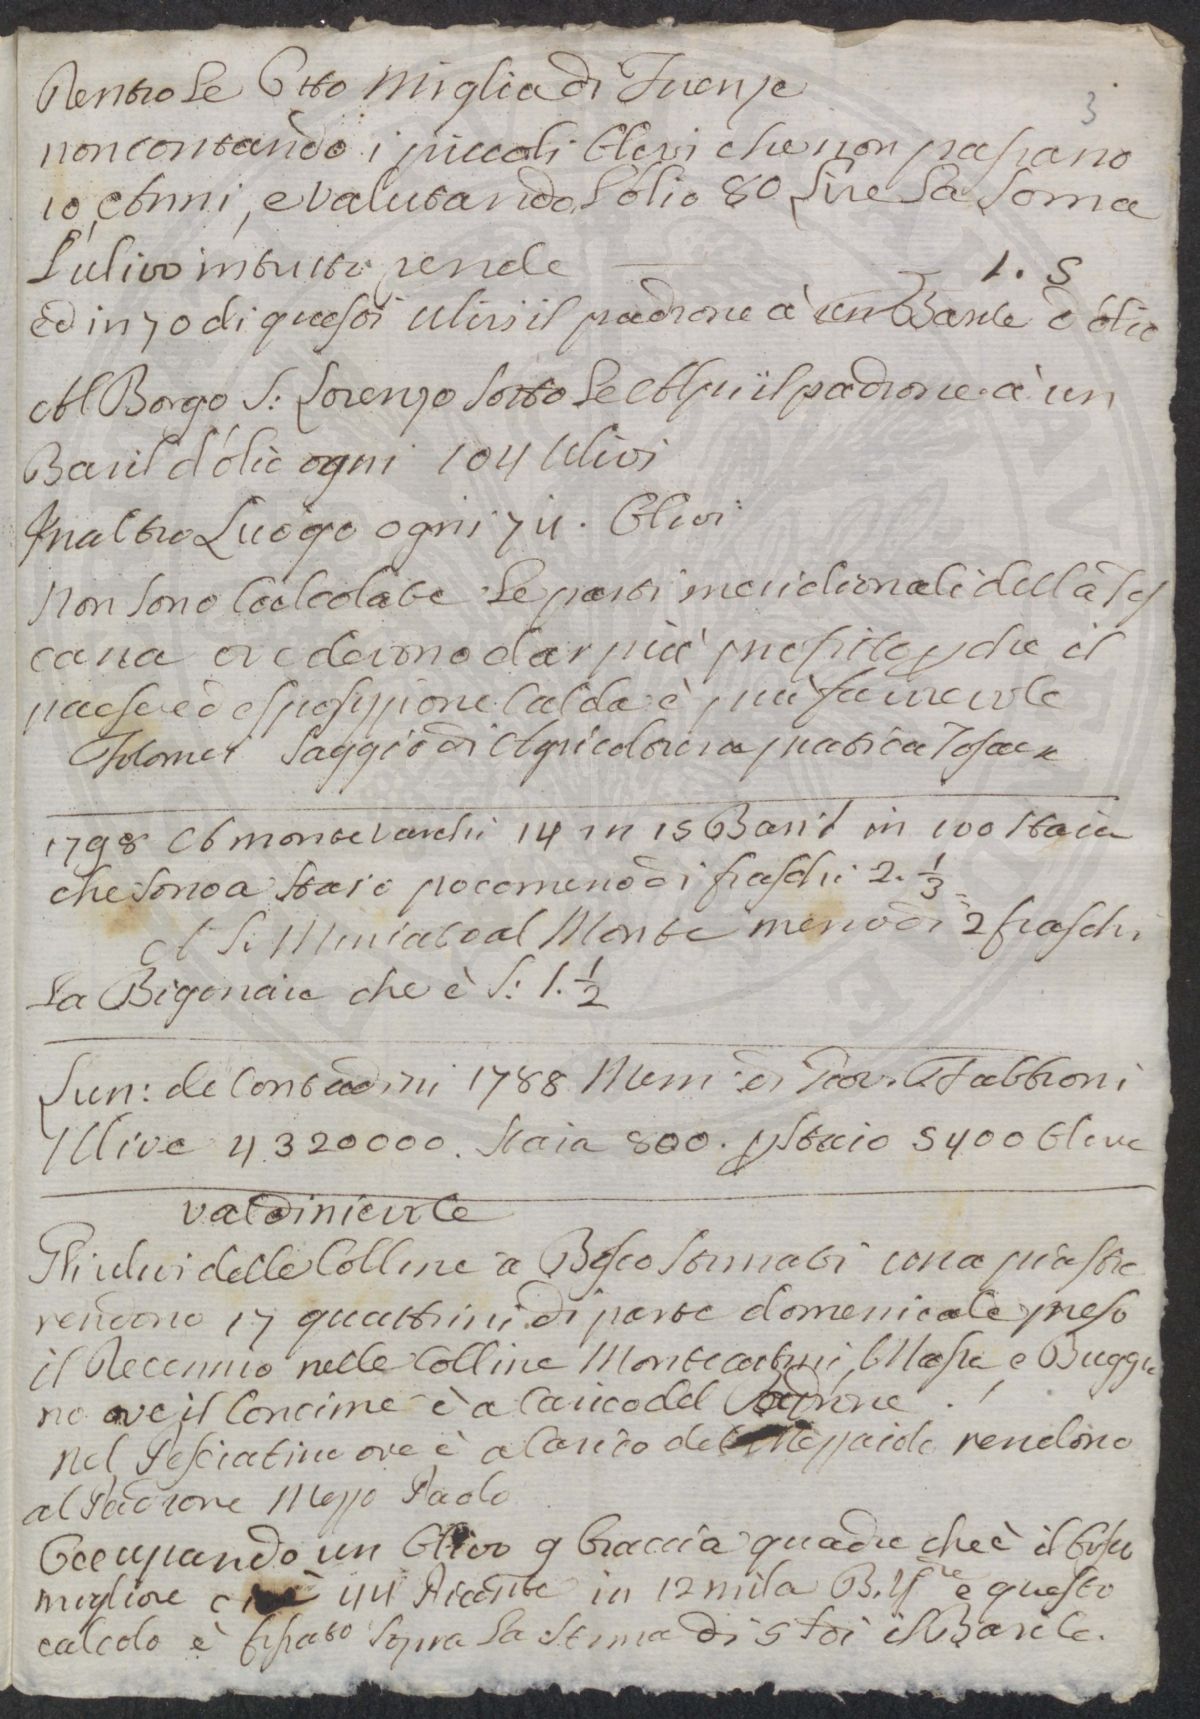 3
Dentro Le Otto Miglia di Firenze
non contando i piccoli Olivi che non passano
10 Anni, e valutando L'olio 80 Lire La Soma
L'ulivo in tutto rende 1. 5
ed in 70 di questi Ulivi il padrone à un Barile d'olio
Al Borgo S: Lorenzo sotto Le Alpi il padrone à un
Baril d'olio ogni 104 Ulivi
In altro Luogo ogni 74. Olivi
Non sono Calcolate Le parti meridionali della Tos
cana ove devono dar più profito p che il
paese ed esposizione Calda è più favorevole
Tolomei Saggio di Agricoltura pratica Tosca
1798 A montevarchi 14 in 15 Baril in 100 Staia
che sono a staio poco meno di fiaschi 2. 1/3
A S: Miniato al Monte meno di 2 fiaschi
La Bigonaia che è S: 1. 1/2
Lun: de Contadini 1788 Mem: di Giov. Fabbroni
Ulive 4320000. Staia 800. p Staio 5400 Olive
valdinievole
Gli ulivi delle Colline a Bosco stimati una piastra
rendono 17 quattrini di parte domenicale preso
il Decennio nelle Colline Montecatini, Massa e Buggia
no ove il Concime è a Carico del Padrone.
Nel Pesciatino ove è a Carico del Mezzaiolo rendono
al Padrone Mezzo Paolo
Occupando un Olivo 9 braccia quadre che è il
migliore 44 Piante in 12 mila B. q.re e questo
calcolo è fissato sopra La stima di 5 il Barile.